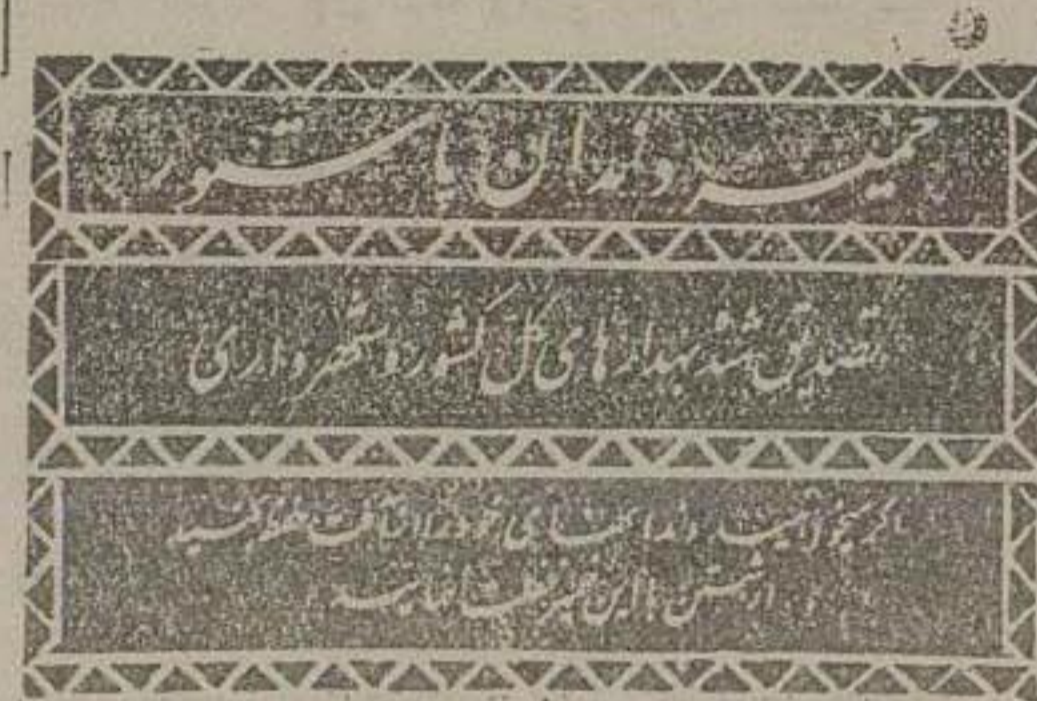 خمیر دندان پاستور
تصدیق شده بهداری کل کشور و شهرداری
اگر میخواهید دندانهای خود را از آفت حفظ کنید
از شستن با این خمیر غفلت ننمائید